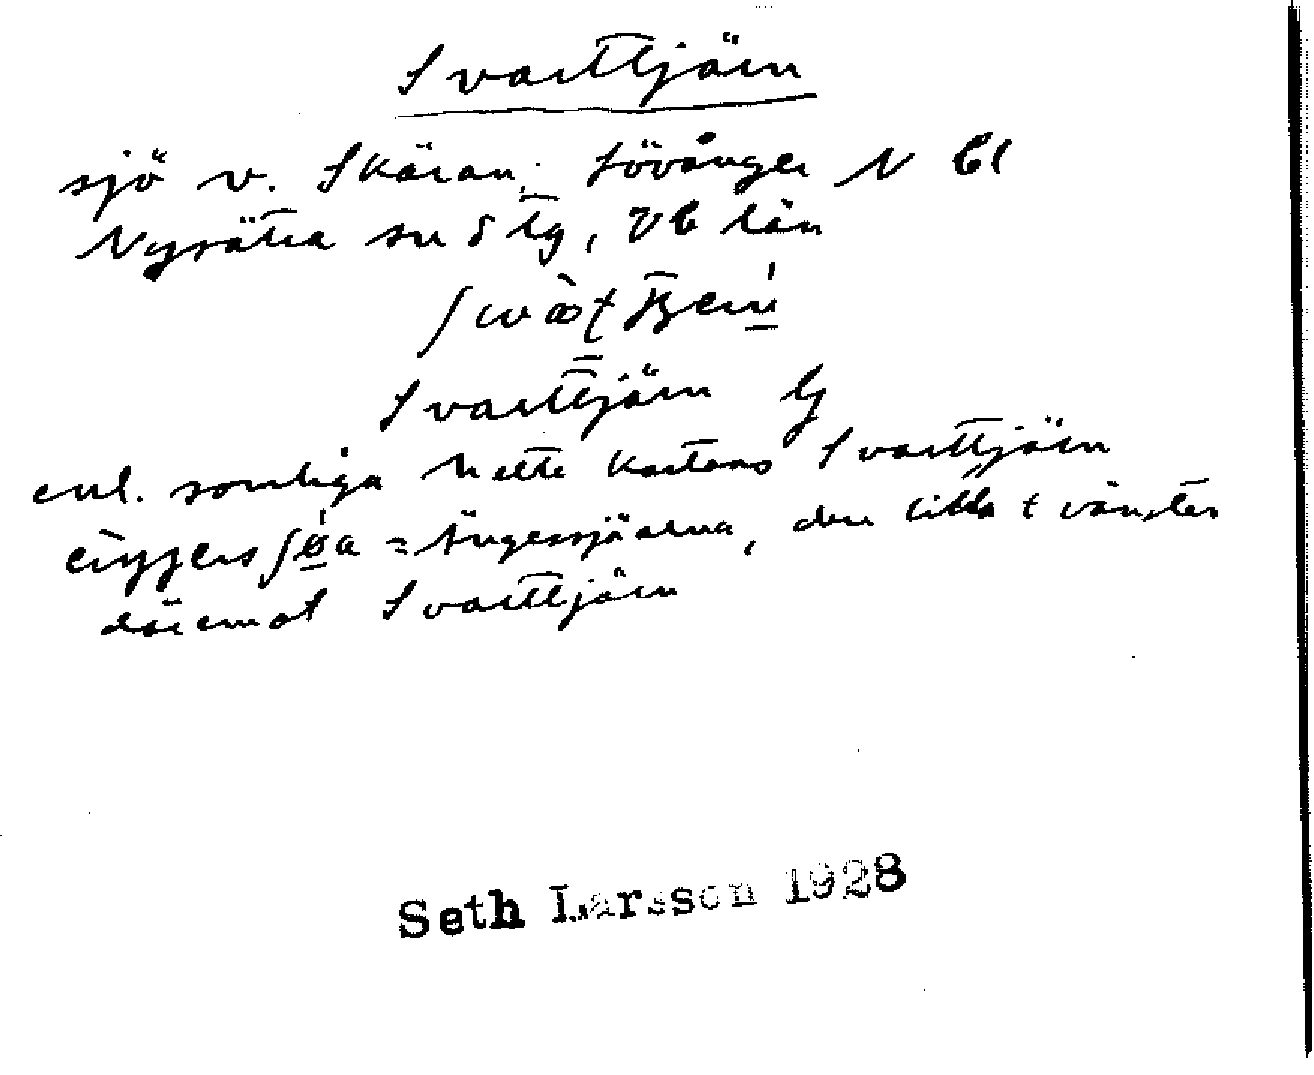 Svarttjärn
sjö v. Skäran, Lövånger N Bl
Nysätra sn o tg, Vb län
Svarttjärn
enl. somliga Kartans Svarttjärn
= Ängessjöarna, den lilla t vänster
däremot Svarttjärn
Seth Larsson 1928